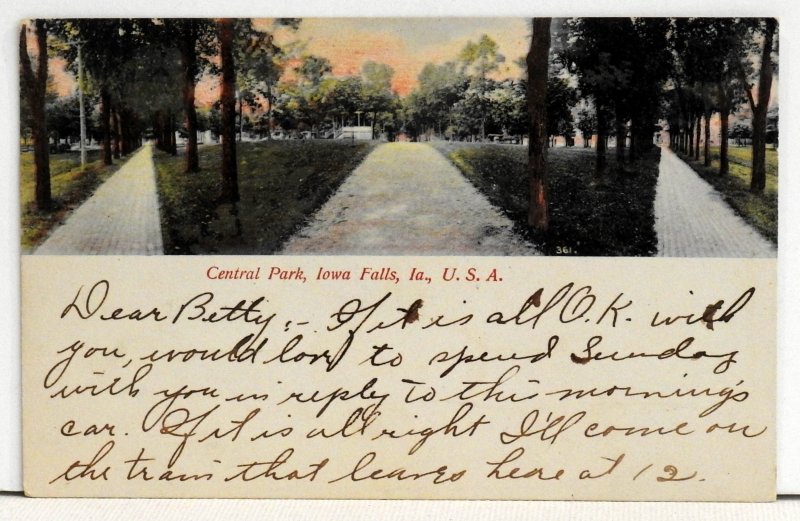 361.
Central Park, Iowa Falls, Ia., U. S. A.
Dear Betty;- If it is all O.K. with
you, would love to spend Sunday
with you in reply to this morning's
car. If it is all right I'll come on
the train that leaves here at 12.